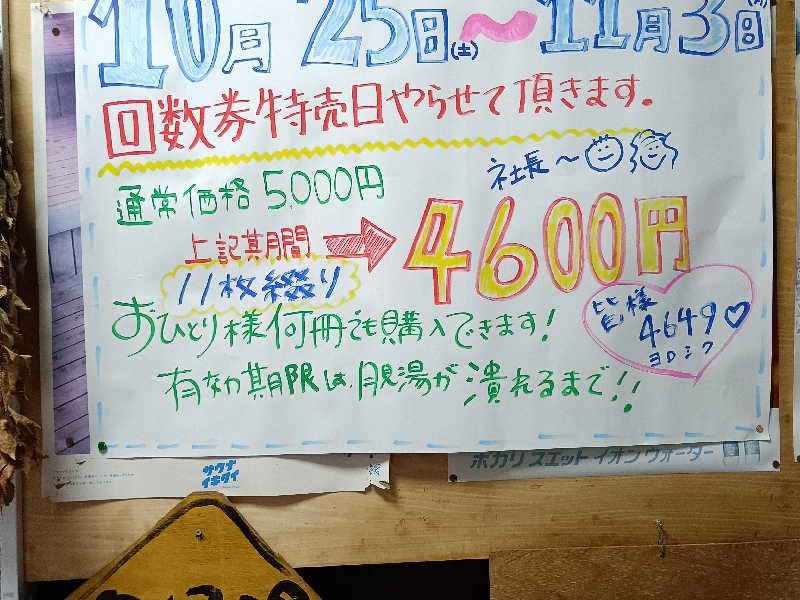 10月25日(土)〜11月3日(月)
回数券特売日やらせて頂きます。
社長〜
通常価格5,000円
上記期間→4600円
11枚綴り
おひとり様何冊でも購入できます!
皆様
4649♡
ヨロシク
有効期限は、月見湯が潰れるまで!!
サウナ
イキタイ
ポカリスエット イオンウォーター